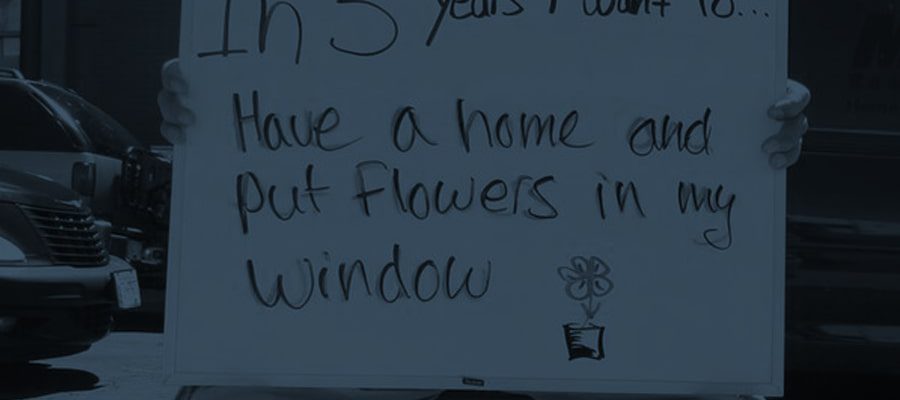 In 5 years I want to...
Have a home and
put flowers in my
window